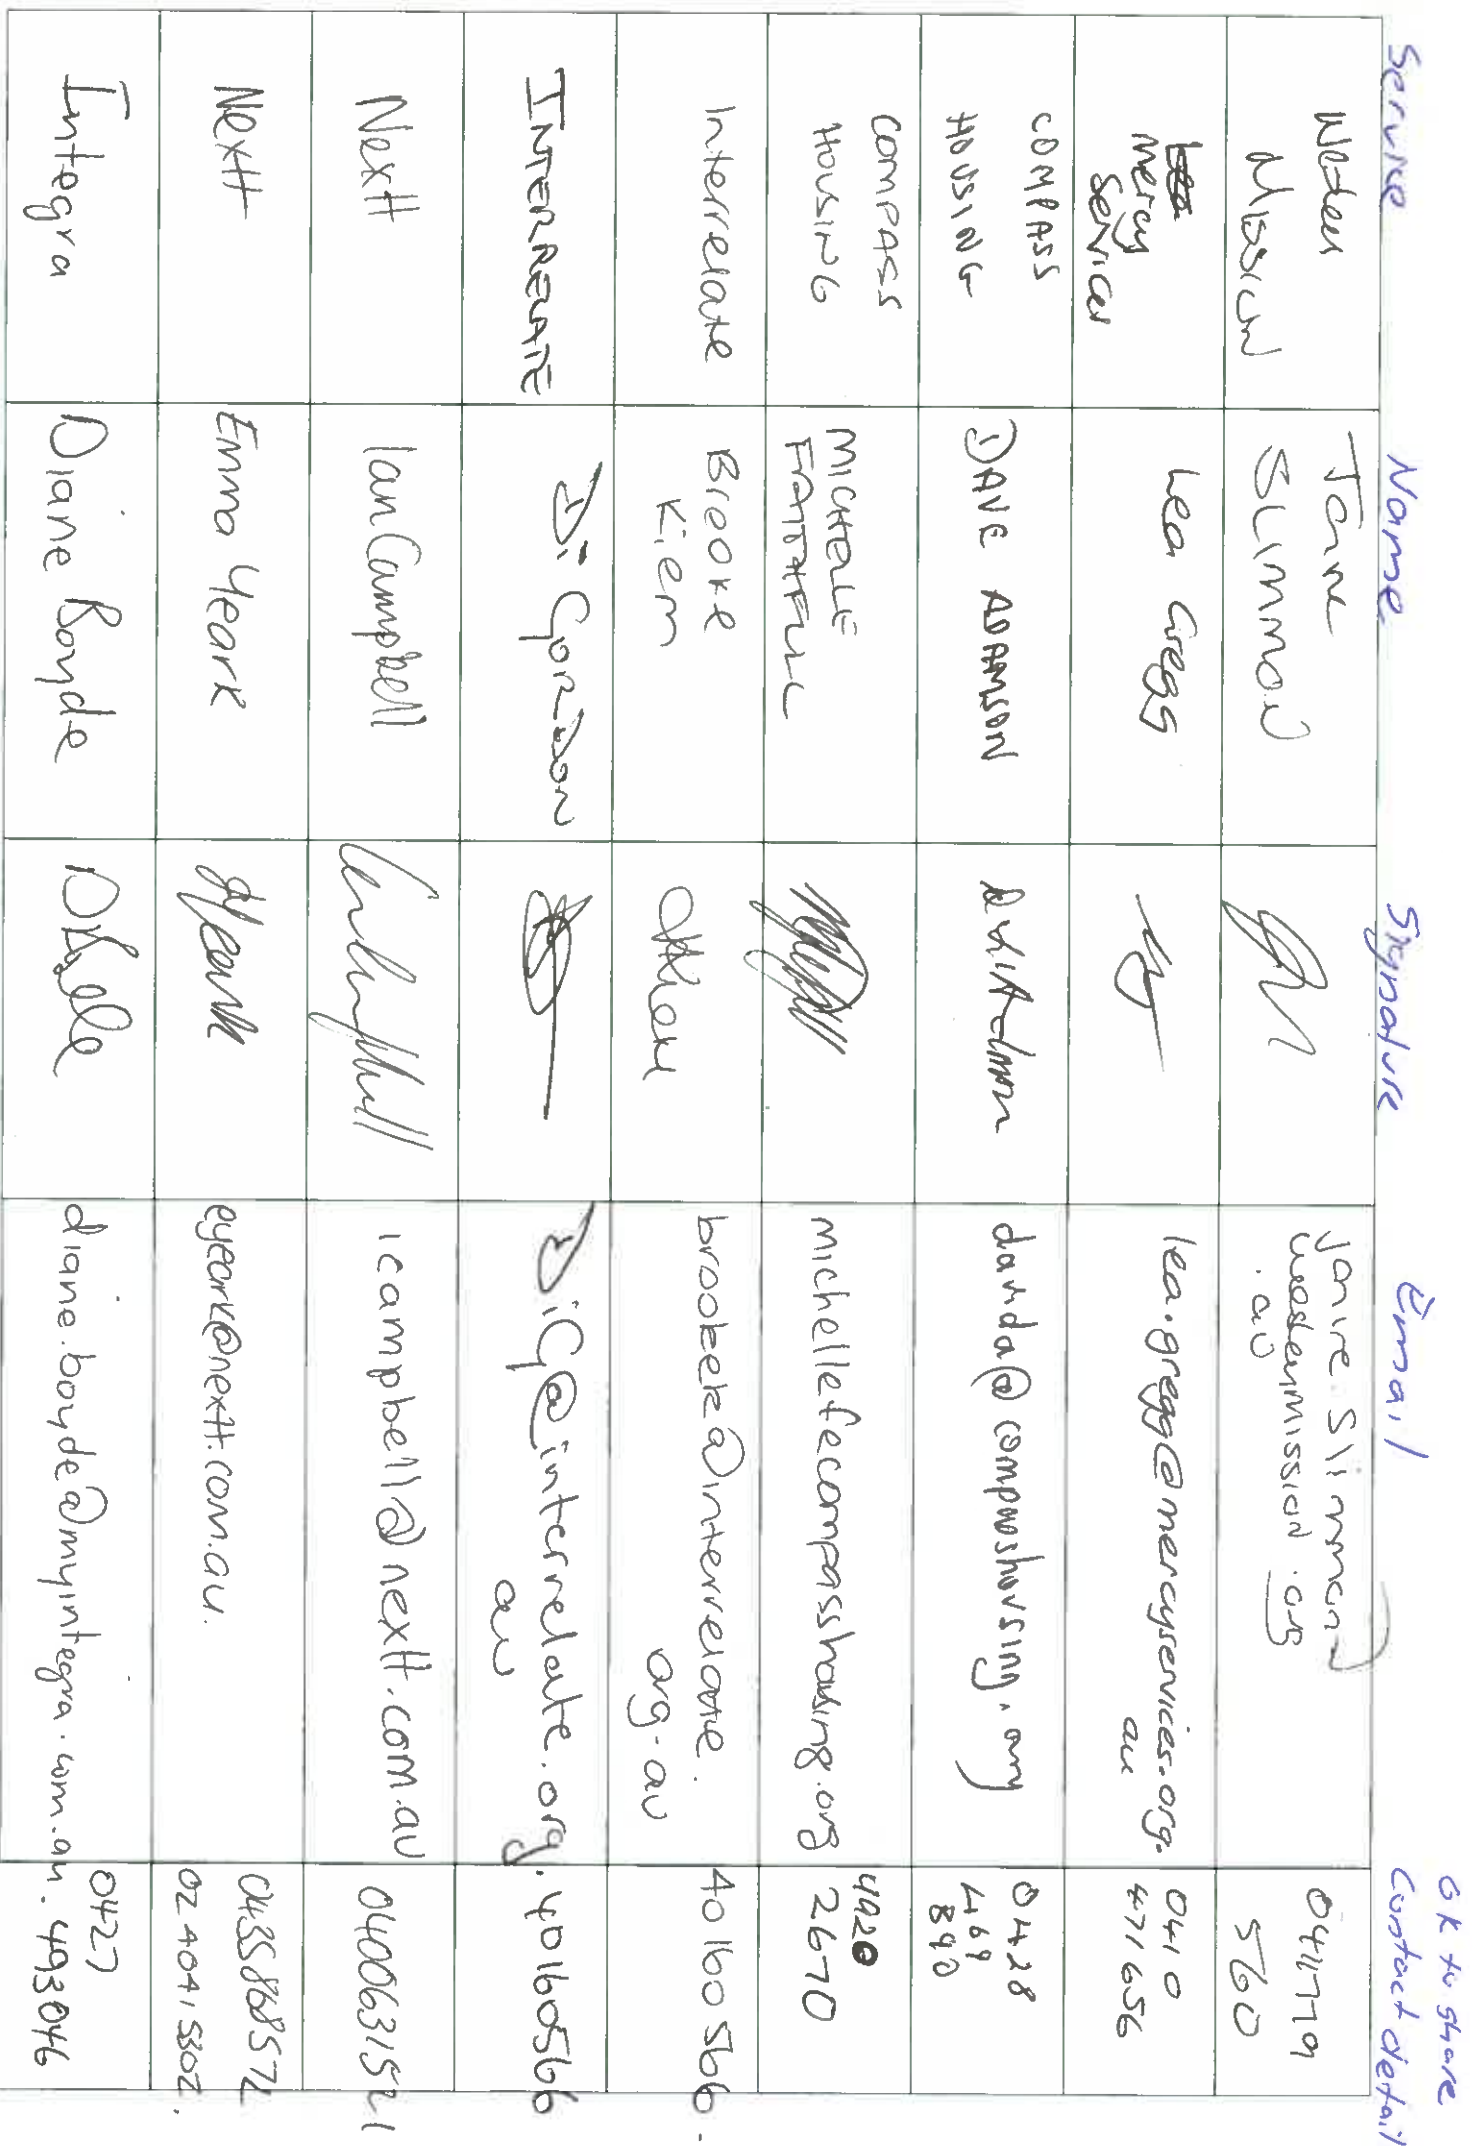 Service Name Signature Email OK to share
Contact detail
Mission
Jane
SLIMMON
. au
0411779
560
Mercy
Services
Lea Gregg
lea.gregg@mercyservices.org.
au
0410
471656
COMPASS
HOUSING
DAVE ADAMSON
davida@compasshousing.org
0428
469
890
COMPASS
HOUSING
MICHELLE
michellef@compasshousing.org
4920
2670
Interrelate
Brooke
Kiem
brookek@interrelate.
org.au
40160566.
INTERRELATE
Di Gordon
DiG@interrelate.org.
au
40160566
Nextt
Ian Campbell
icampbell@nextt.com.au
0400631521
Nextt
Emma Yeark
eyeark@nextt.com.au.
0435868572
02 4041 5302.
Integra
Diane Boyde
diane.boyde@myintegra.com.au.
0427
493046